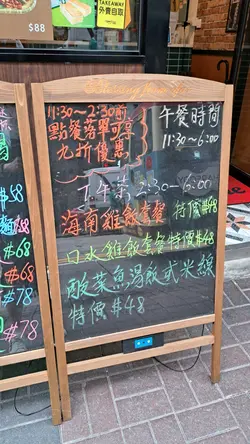 $88
TAKEAWAY
外賣自取
11:30~2:30前
點餐落單可享
九折優惠
午餐時間
11:30~6:00
下午茶 2:30~6:00
海南雞飯套餐 特價$48
口水雞飯套餐特價$48
酸菜魚湯飯或米線
特價$48
$58
$58
$68
$68
$78
$78